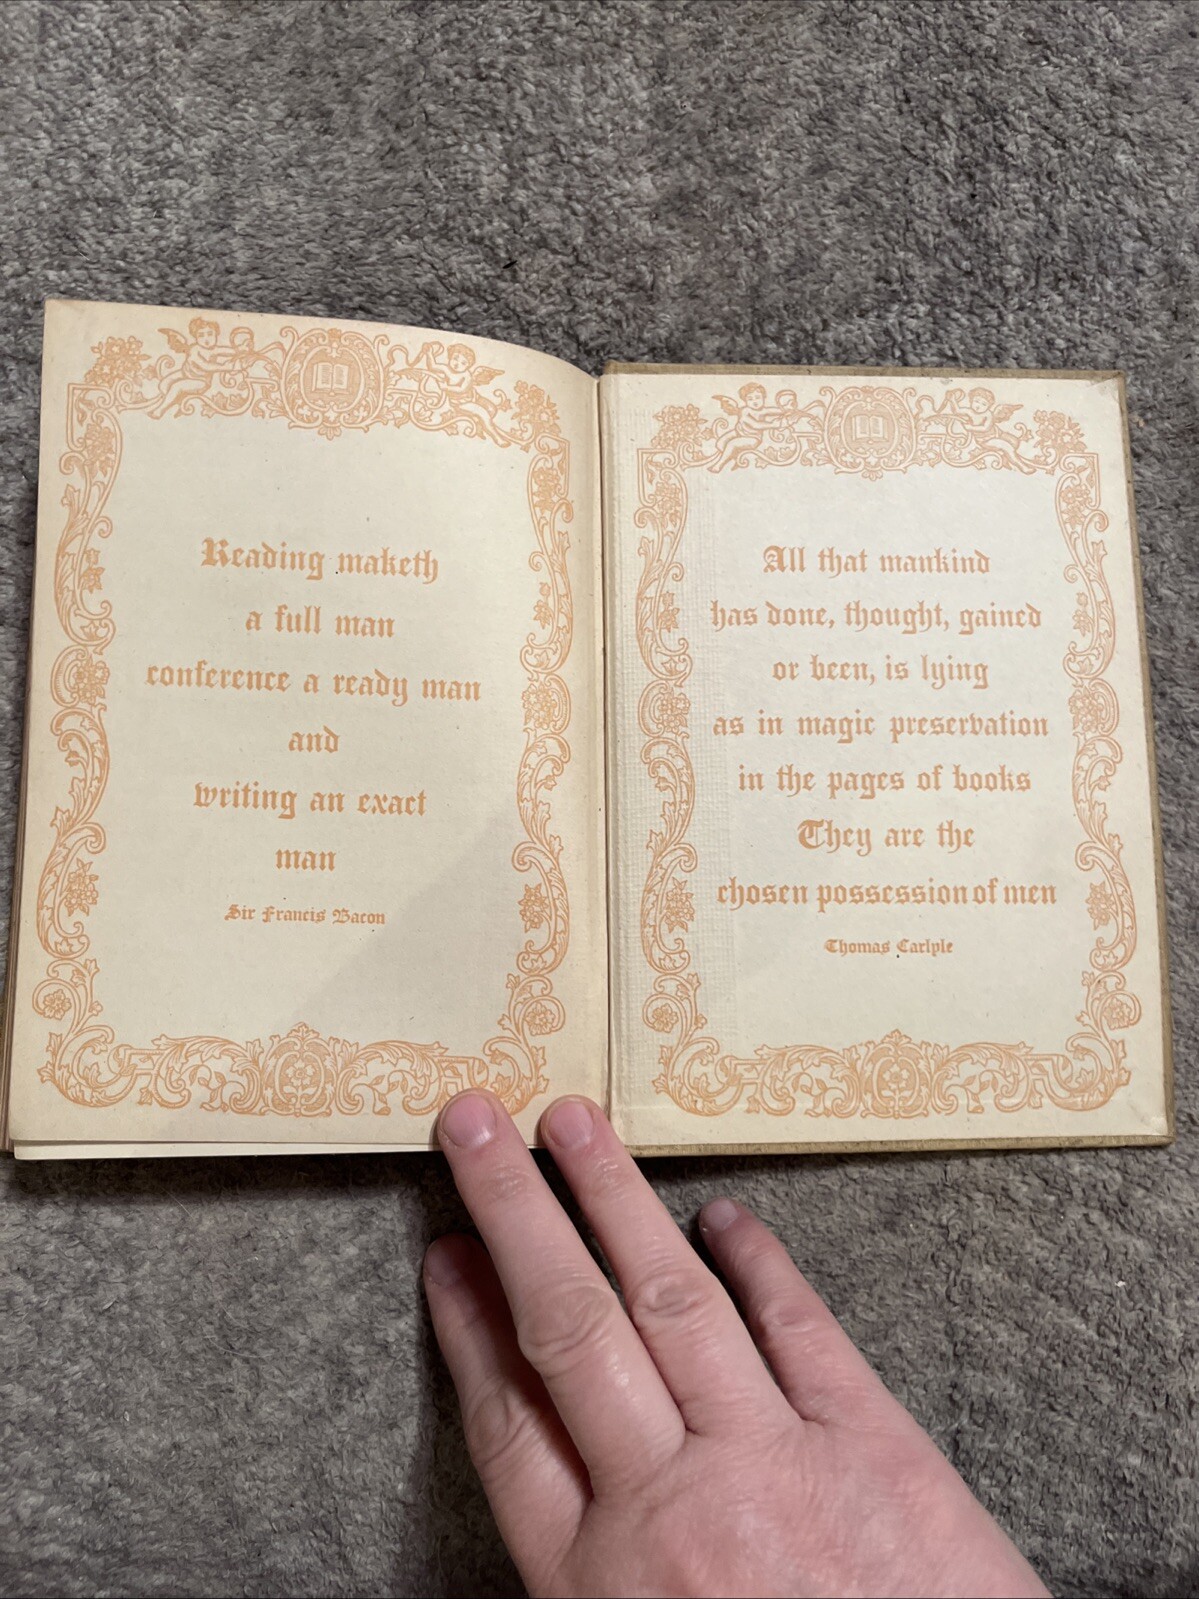 Reading maketh
a full man
conference a ready man
and
writing an exact
man
Sir Francis Bacon
All that mankind
has done, thought, gained
or been, is lying
as in magic preservation
in the pages of books
They are the
chosen possession of men
Thomas Carlyle